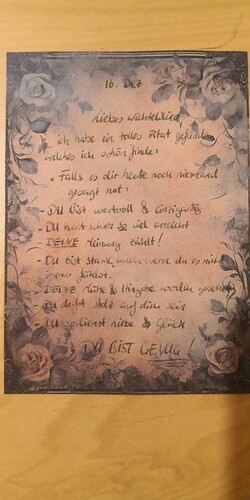 16. Dez
Liebes Wichtelkind
ich habe ein tolles Zitat gefunden
welches ich schön finde:
"Falls es dir heute noch niemand
gesagt hat:
- DU bist wertvoll & einzigartig
- DU hast schon so viel erreicht
- DEINE Meinung zählt!
- DU bist stark, auch wenn du es nicht
immer fühlst.
- DEINE Mühe & Hingabe werden gesehen
- DU darfst stolz auf dich sein
- DU verdienst Liebe & Glück
! DU BIST GENUG!